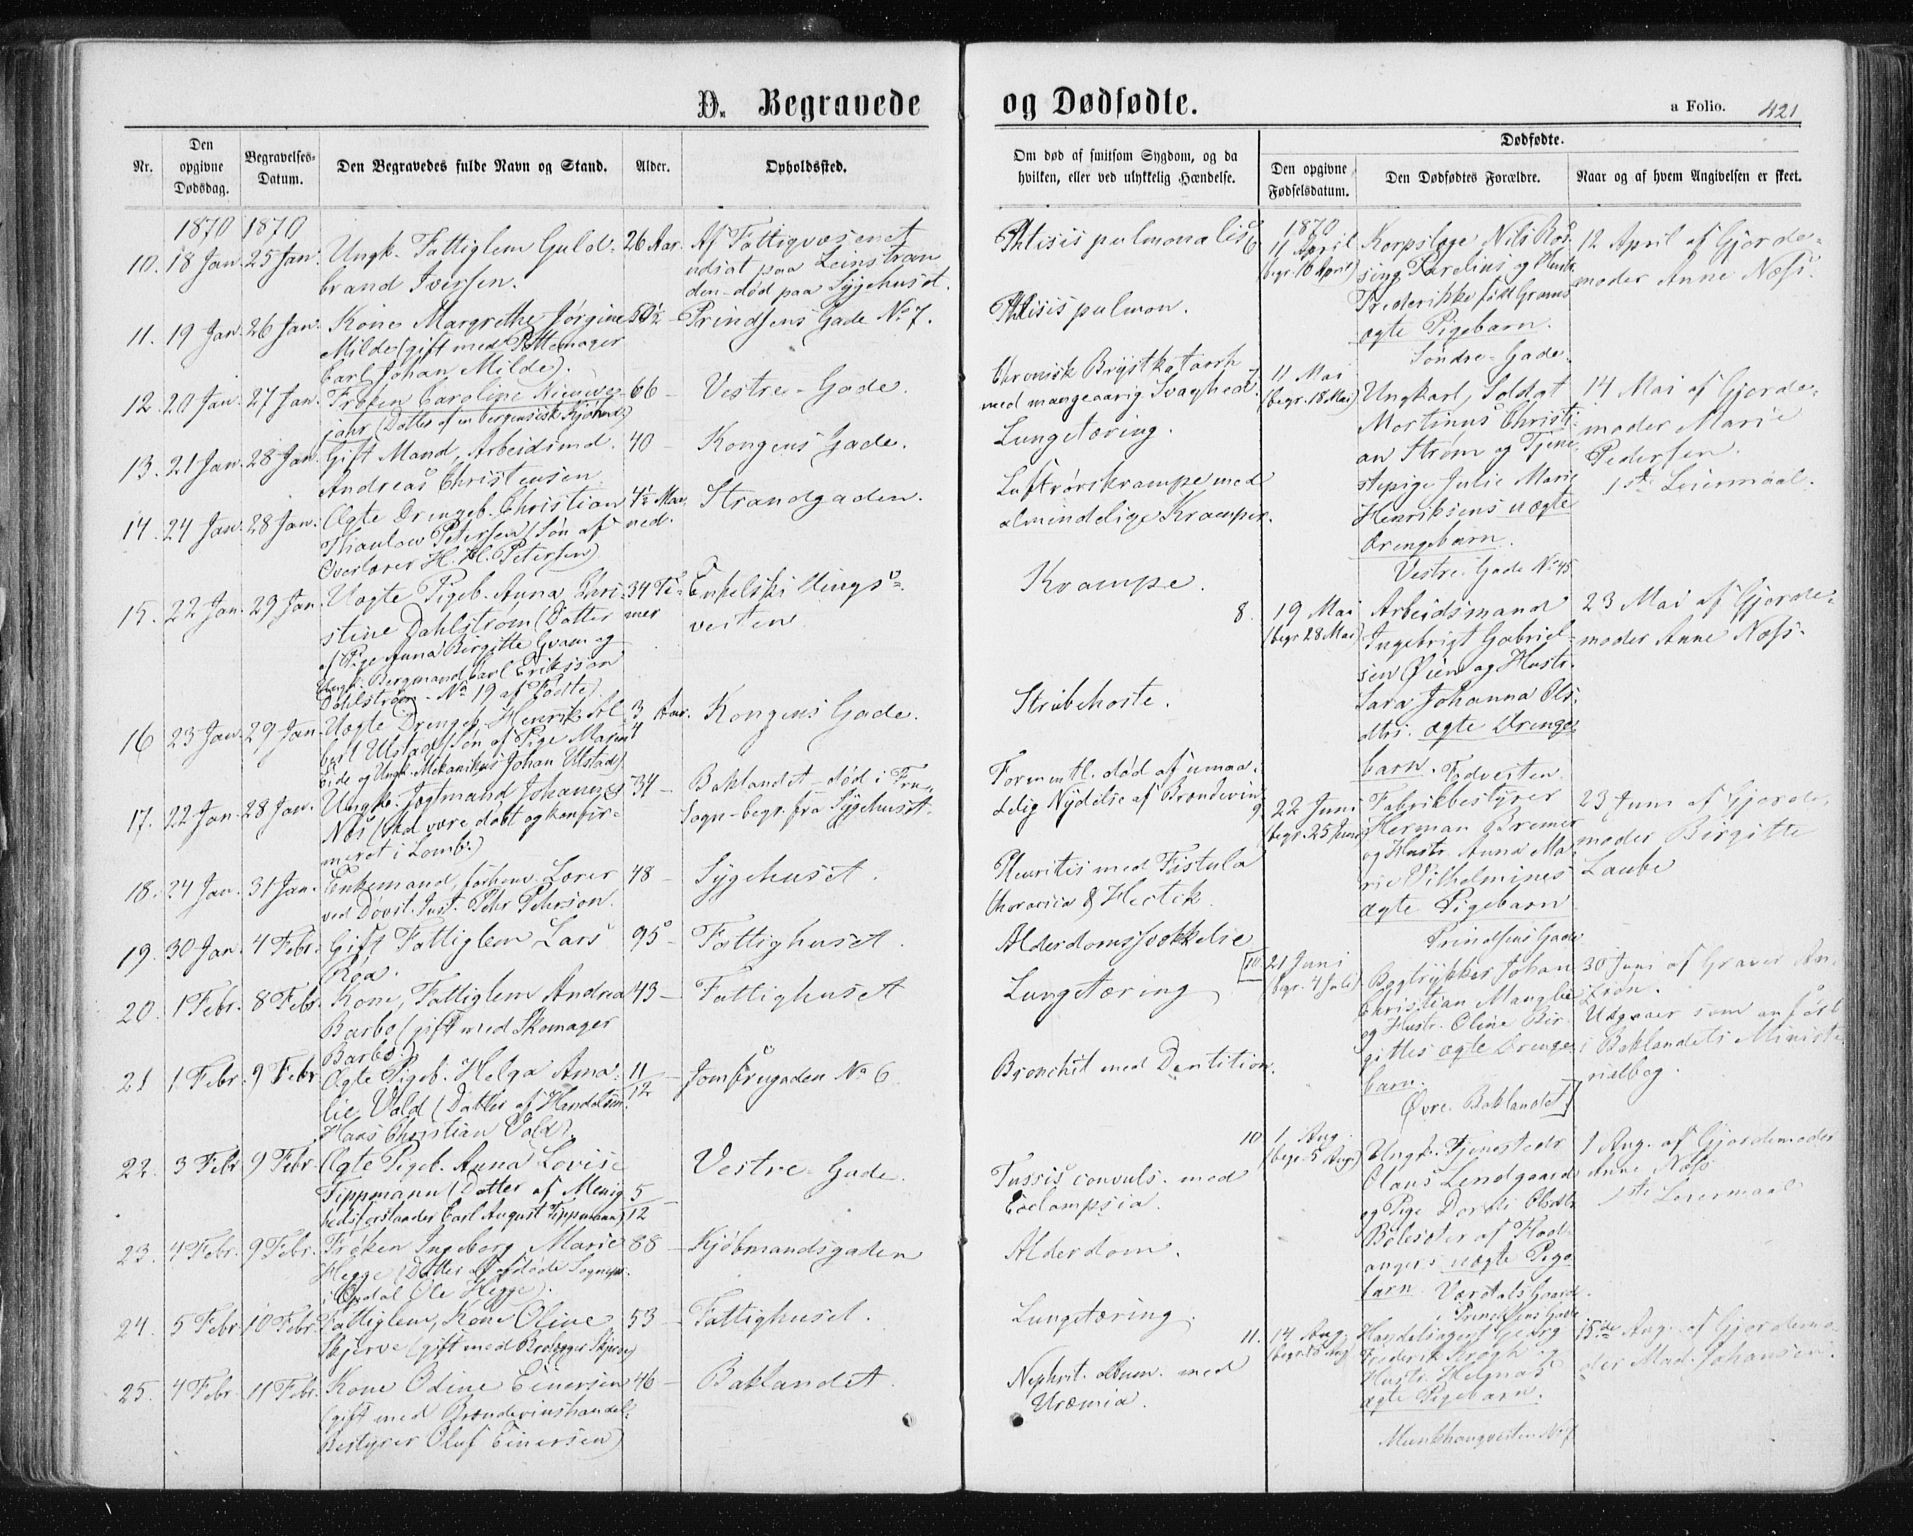 D. Begravede og Dødfødte.
a Folio. 421
Nr.
Den opgivne Dødsdag.
Begravelses-Datum.
Den Begravedes fulde Navn og Stand.
Alder.
Opholdssted.
Om død af smitsom Sygdom, og da hvilken, eller ved ulykkelig Hændelse.
Dødfødte.
Den opgivne Fødselsdatum.
Den Dødfødtes Forældre.
Naar og af hvem Angivelsen er skeet.
1870 1870
10. 18 Jan. 25 Jan. Ungk. Fattiglem Guld- 26 Aar. Af Fattigvæsenet
brand Iversen. udsat paa Leinstran
den - død paa Sygehuset.
Phtisis pulmonalis
11. 19 Jan. 26 Jan. Kone Margrethe Jørgine 50½ - Prindsens Gade No 7.
Milde (gift med Pottemager
Carl Johan Milde).
Phtisis pulmon.
12. 20 Jan. 27 Jan. Frøken Caroline 66 - Vestre-Gade.
jahr (Datter af en bergensisk Kjøbmd)
Chronisk Brystkatarrh
med mangeaarig Svaghed.
13. 21 Jan. 28 Jan. Gift Mand, Arbeidsmd. 40 - Kongens Gade.
Andreas Christensen.
Lungetæring.
14. 24 Jan. 28 Jan. Ægte Drengeb. Christian 4½ Maa Strandgaden.
Thaulow Petersen (Søn af ned.
Overlærer H. H. Petersen)
Luftrørskrampe med
almindelige Kramper.
15. 22 Jan. 29 Jan. Uægte Pigeb. Anna Chri 34 Ti- Enkelski Hings-
stine Dahlstrøm (Datter mer veiten
af Pige Anna Birgitte Gram og
Ungk. Bergmand Carl Eriksson
Dahlstrøm - No 19 af Fødte).
Krampe.
16. 23 Jan. 29 Jan. Uægte Drengeb. Henrik Al 3/4 Aar. Kongens Gade.
bert Ulstad (Søn af Pige
og Ungk. Mekanikus Johan Ulstad)
Strubehoste.
17. 22 Jan. 28 Jan. Ungk. Jagtmand Johannes 34 - Baklandet - død i Fru
Næs (skal være døbt og konfir- Sogn - begr. fra Sygehuset.
meret i Lomb.)
Formentl. død af umaa-
delig Nydelse af Brændeviin
18. 24 Jan. 31 Jan. Enkemand, forhenv. Lærer 48 - Sygehuset.
ved Døvst. Inst. Pehr Pehrson.
Pleuritis med Fistula
thoracica & Hectik.
19. 30 Jan. 4 Febr. Gift Fattiglem Lars 95 - Fattighuset.
Roa.
Alderdomssvækkelse
20. 1 Febr. 8 Febr. Kone, Fattiglem Andrea 43 - Fattighuset
Barbo (gift med Skomager
Barbo.)
Lungetæring
21 1 Febr. 9 Febr. Ægte Pigeb. Helga Ama- 11/12 - Jomfrugaden No 6
lie Vold (Datter af Handelsm.
Hans Christian Vold).
Bronchit med Dentition.
22. 3 Febr 9 Febr. Ægte Pigeb. Anna Lovise 5/12 - Vestre-Gade.
Tippmann (Datter af Menig
hedsforstander Carl August Tippmann)
Tussis convuls. med
Eclampsia.
23. 4 Febr. 9 Febr. Frøken Ingeborg Marie 88 - Kjøbmandsgaden
Hegge (Datter af afdøde Sognepr.
i Opdal Ole Hegge).
Alderdom.
24. 5 Febr. 10 Febr. Fattiglem, Kone Oline 53 - Fattighuset.
Skjerve (gift med Brolægger Skjerve)
Lungetæring.
25. 4 Febr. 11 Febr. Kone Odine Einersen 46 - Baklandet.
(gift med Brændevinshandel-
Bestyrer Oluf Einersen)
Nephrit. album. med
Uræmia.
1870
6 11 April Korpslæge Nils Ros 12 April af Gjorde-
(begr. 16 April) sing Karelius og Hustr. moder Anne Næss.
Frederikke født Grams
ægte Pigebarn.
Søndre-Gade.
7 11 Mai Ungkarl, Soldat 14 Mai af Gjorde-
(begr. 18 Mai) Martinus Christi- moder Marie
an Strøm og Tjene Pedersen.
stepige Julie Marie 1ste Leiermaal.
Henriksens uægte
Drengebarn.
Vestre-Gade No 45
8. 19 Mai Arbeidsmand 23 Mai af Gjorde-
(begr 28 Mai) Ingebrigt Gabriel- moder Anne Næss.
sen Øien og Hustr.
Sara Johanna Ols-
dtrs. ægte Drenge-
barn.
9 22 Juni Fabrikbestyrer 23 Juni af Gjorde-
(begr. 25 Juni) Herman Bremer moder Birgitte
og Hustr. Anna Ma- Laube
rie Vilhelmines
ægte Pigebarn
Prindsens Gade
[10 21 Juni Bogtrykker Johan 30 Juni af Graver An.
(begr. 4 Juli) Christian Manglie Krøn.
og Hustr. Oline Bir- Udgaaer som anført
gittes ægte Drenge- i Baklandets Ministe
barn. rialbog.
Øvre Baklandet]
10 1 Aug. Ungk. Tjenestedr. 1 Aug. af Gjordemoder
(begr. 5 Aug.) Olaus Lindgaard Anne Næss
og Pige Dorthi Olsdtr. 1ste Leiermaal
af Hod-
angers uægte Pige
barn. Værdals Gaard
i Prindsens Gade
11. 14 Aug. Handelsagent Georg 15de Aug. af Gjordemo-
Frederik Krogh og der Mad. Johansen.
Hustr. Helgas
ægte Pigebarn.
Munkhaugveiten No 7